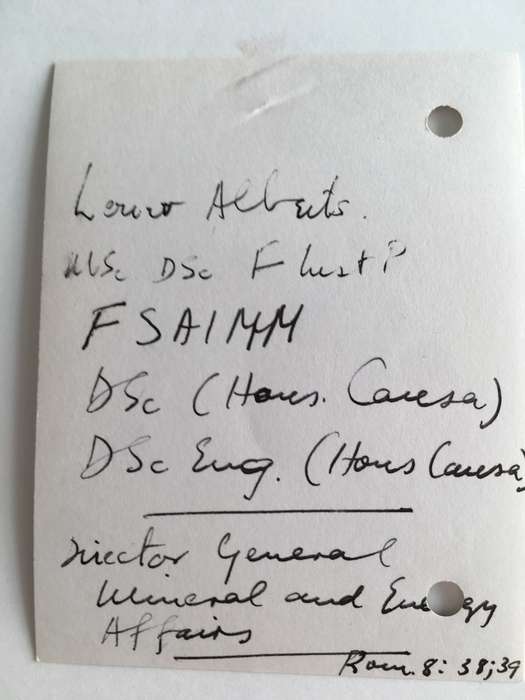 Louw Alberts.
MSc DSc F Inst P
FSAIMM
DSc (Hons. Causa)
DSc Eng. (Hons Causa)
Director General
Mineral and Energy
Affairs
Rom. 8: 38;39